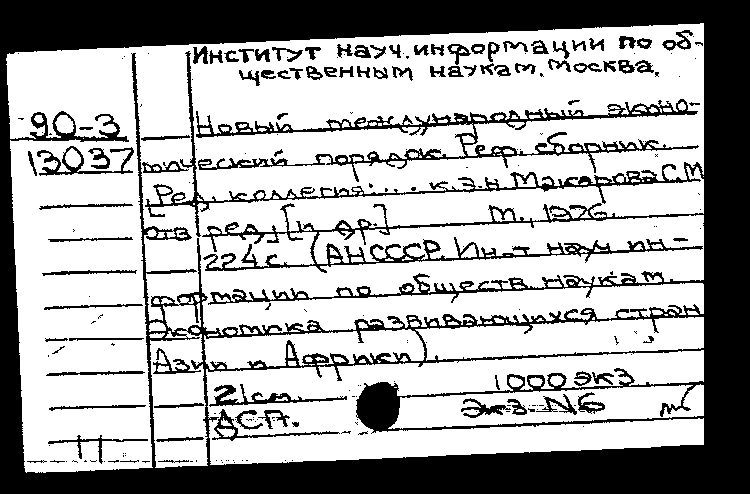 Институт науч. информации по об-
щественным наукам. Москва.
90-3
Новый международный эконо-
13037
мический порядок. Реф. сборник.
[Ред. коллегия: ... к.э.н Макарова С.М
отв ред., [и др.] М., 1976.
224 с. (АНСССР. Ин-т науч ин-
формации по обществ. наукам.
Экономика развивающихся стран
Азии и Африки).
21см. 1000 экз.
ДСП. Экз N6
11